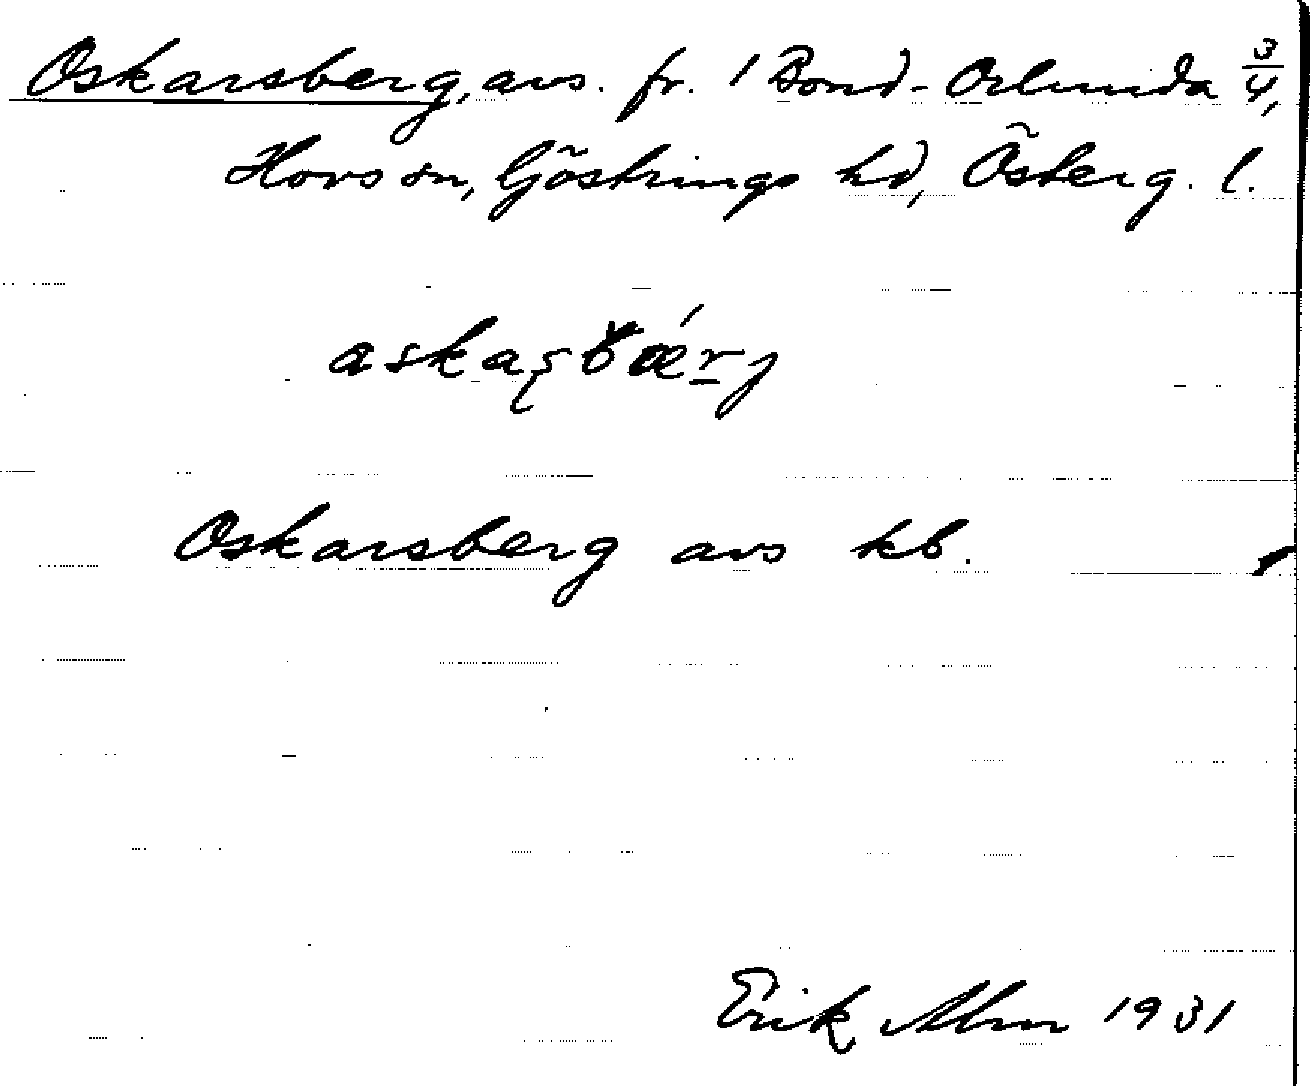 Oskarsberg, avs. fr. 1 Bond-Orlunda 3/4,
Hovs sn, Göstrings hd, Österg. l.
Oskarsberg avs kb.
Erik Alm 1931